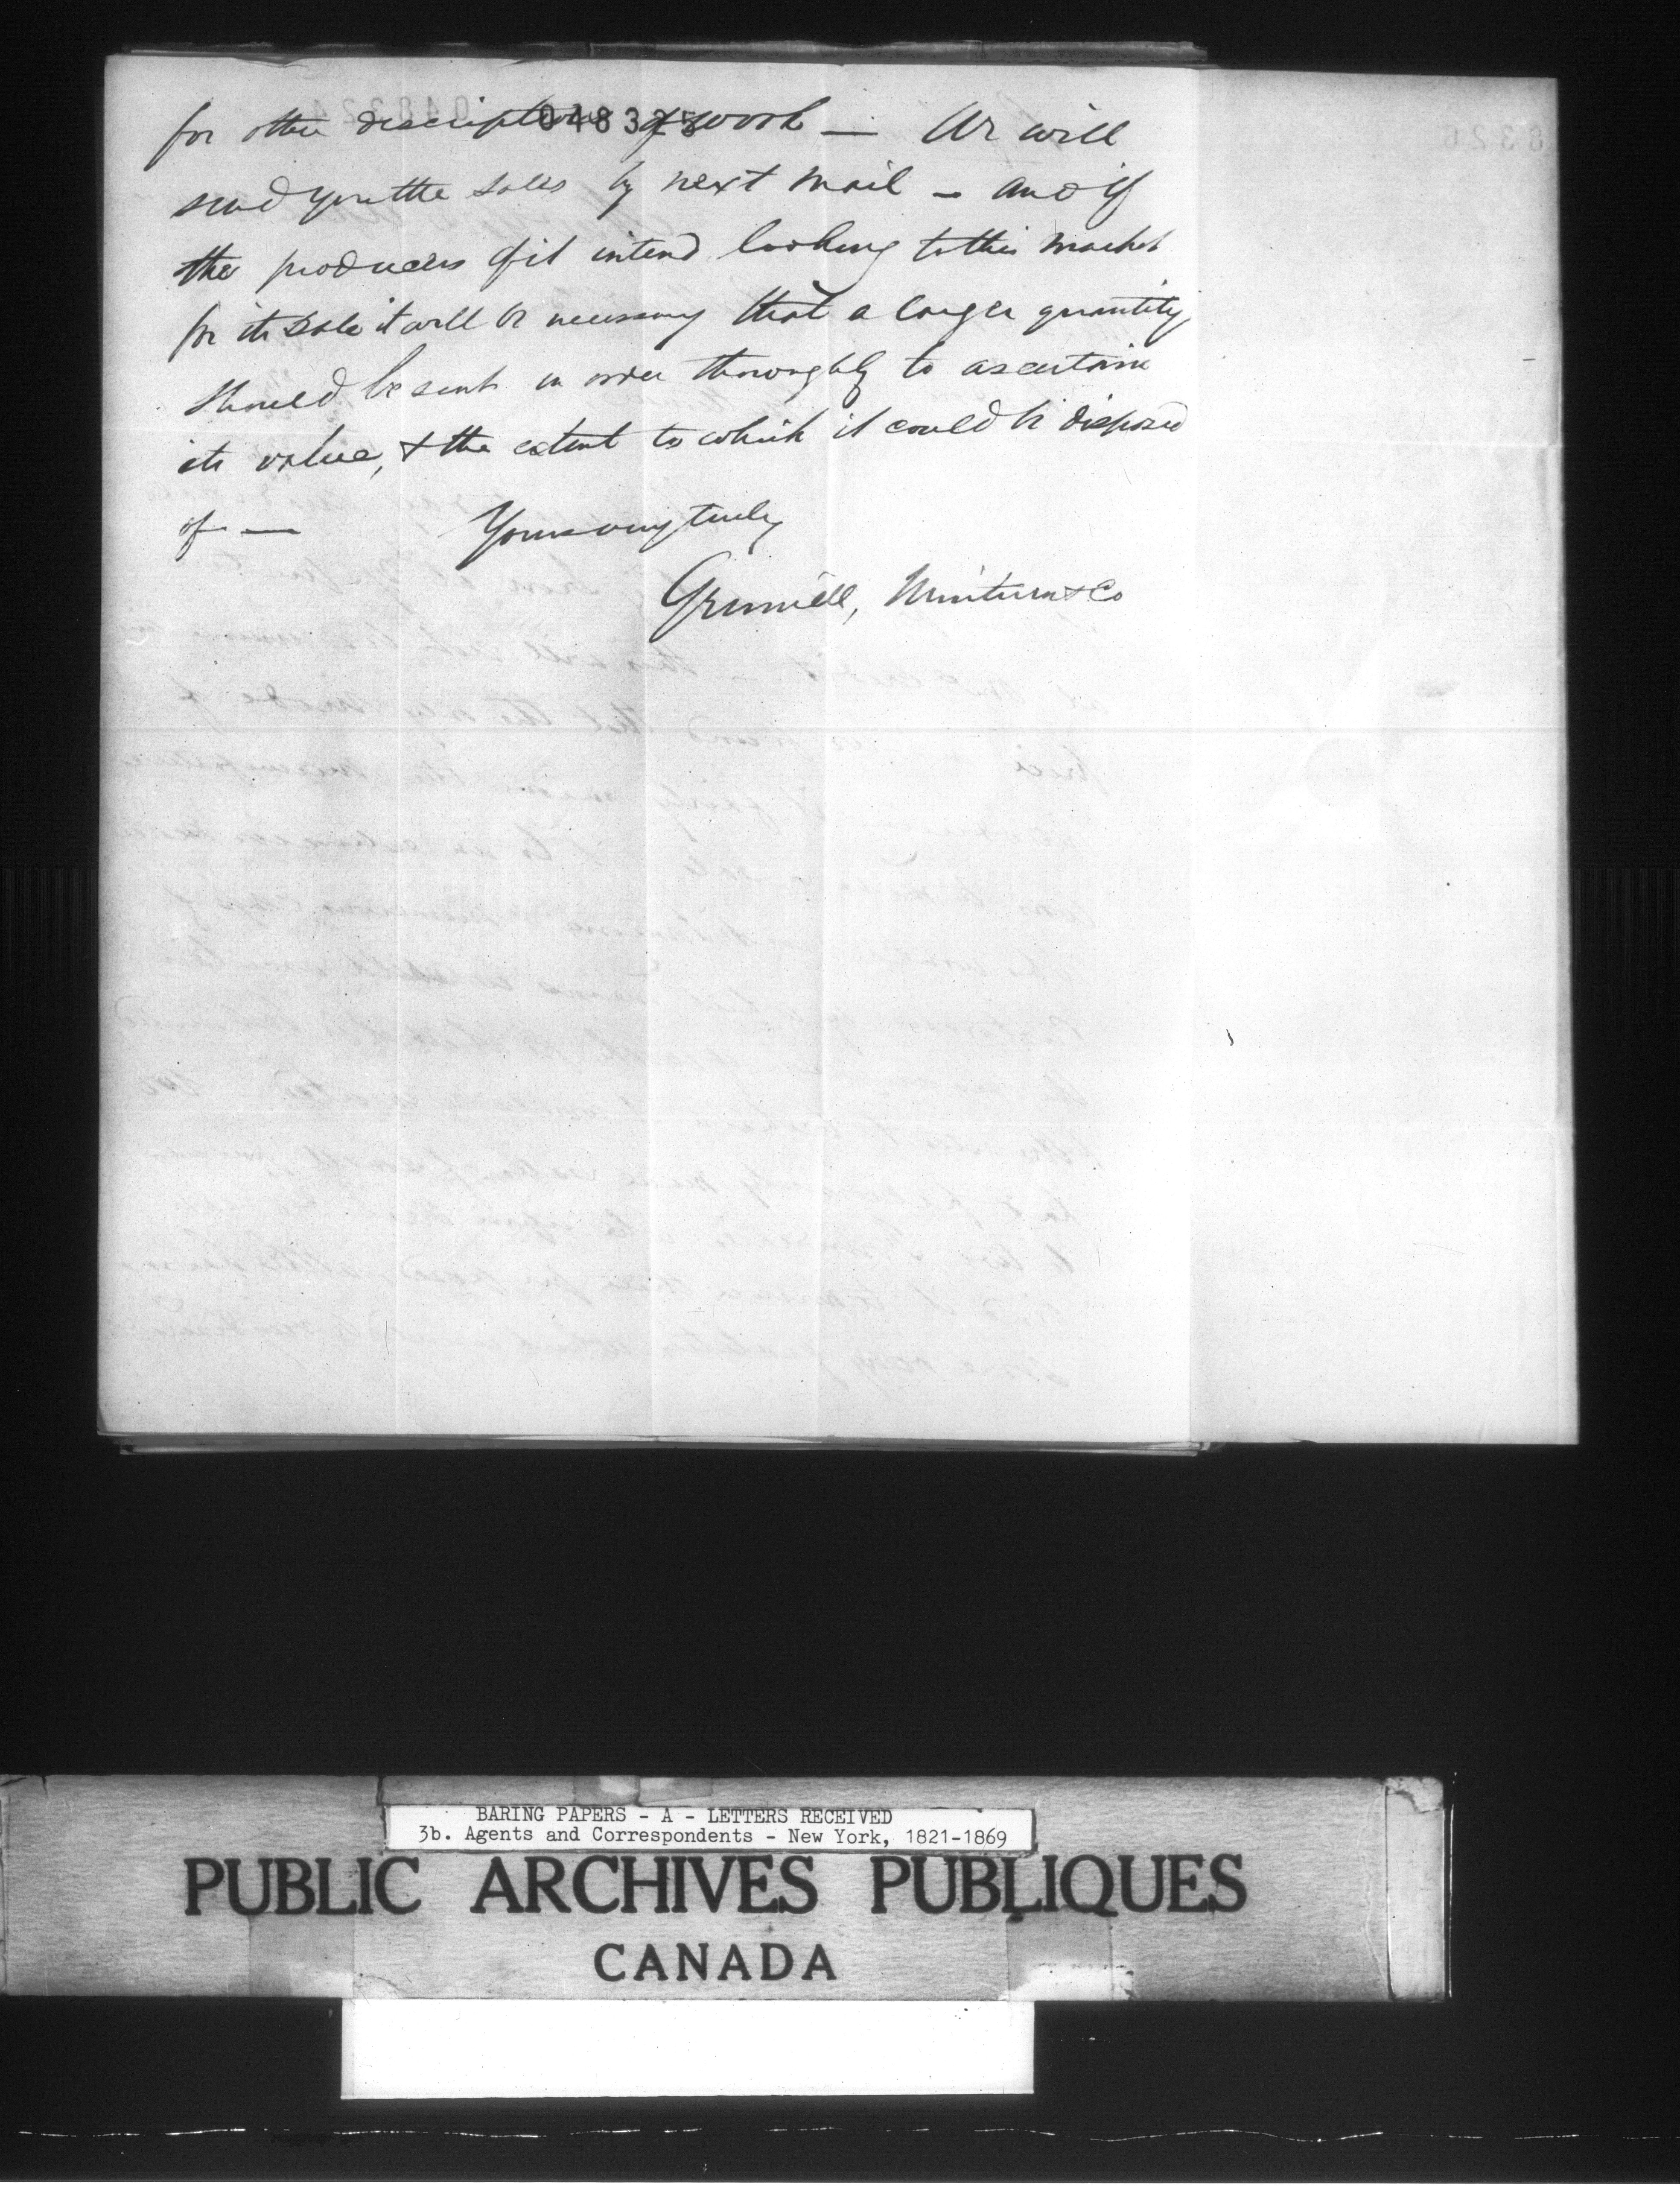 for other descriptions of wool — We will
048325
send you the sales by next mail – and if
the producers of it intend looking to this market
for its sale it will be necessary that a larger quantity
should be sent in order thoroughly to ascertain
its value, & the extent to which it could be disposed
of —
Yours very truly
Grinnell, Minturn & Co
BARING PAPERS - A - LETTERS RECEIVED
3b. Agents and Correspondents - New York, 1821-1869
PUBLIC ARCHIVES PUBLIQUES
CANADA